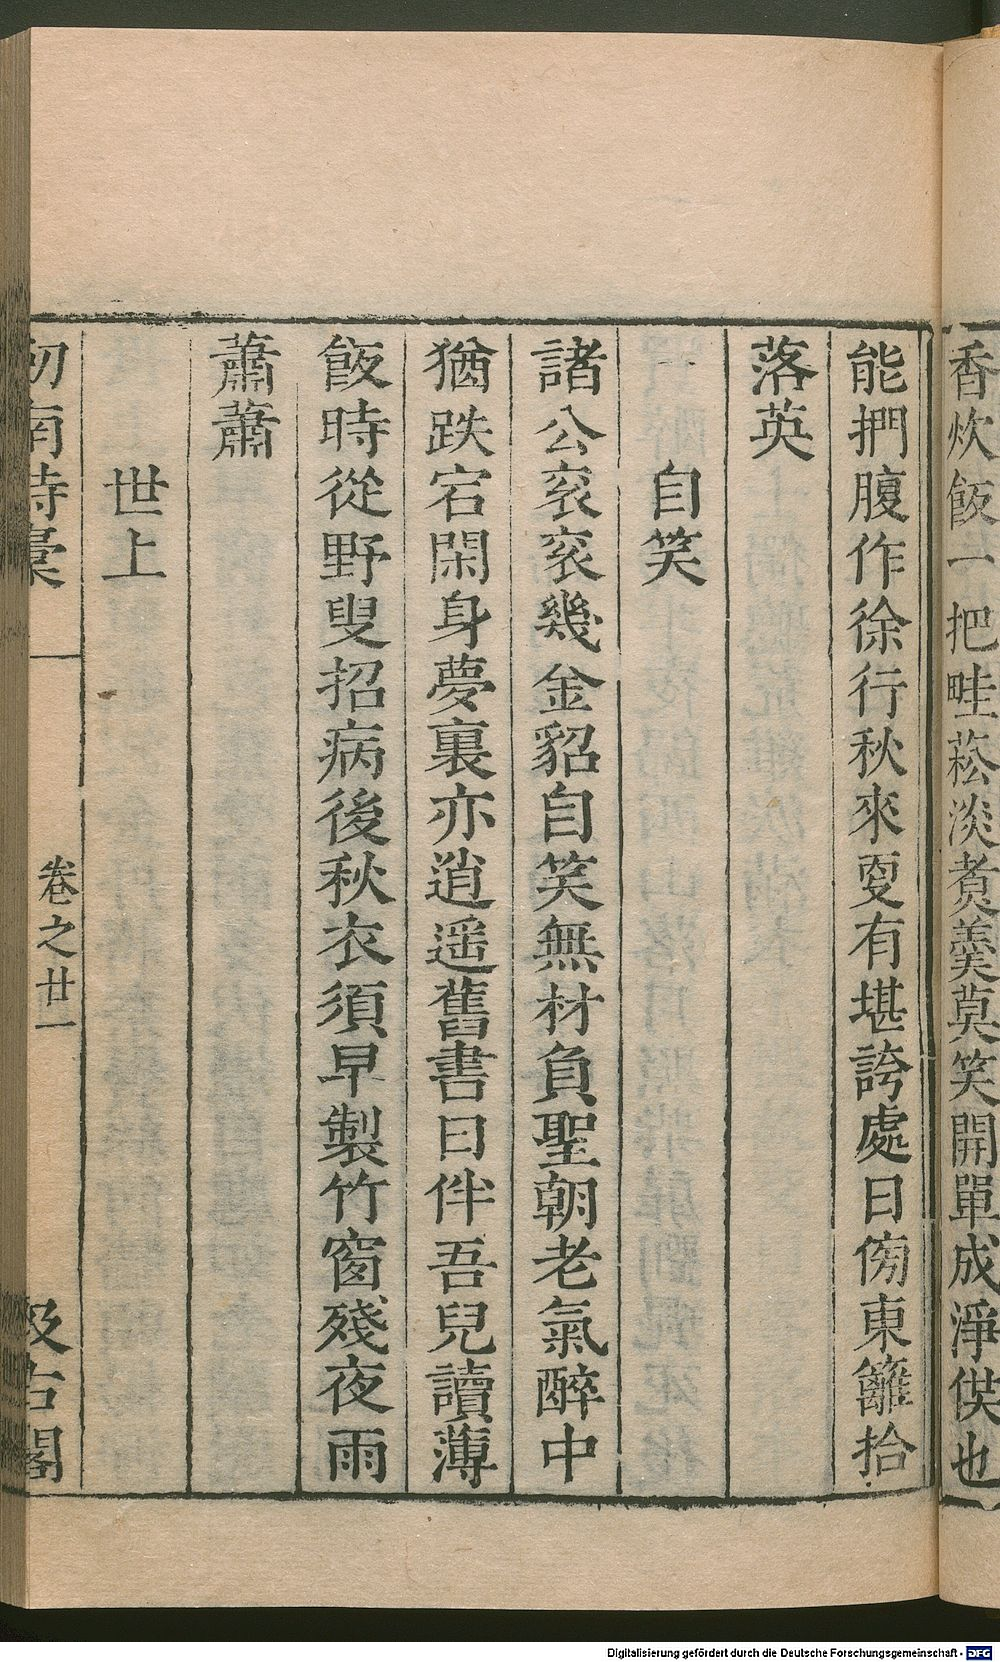 香炊飯一把畦菘淡煑羹莫笑開單成淨供也
能捫腹作徐行秋來更有堪誇處日傍東籬拾
落英
自笑
諸公衮衮幾金貂自笑無材負聖朝老氣醉中
猶跌宕閑身夢裏亦逍遥舊書日伴吾兒讀薄
飯時從野叟招病後秋衣須早製竹窗殘夜雨
蕭蕭
世上
劒南詩藁
卷之廿一
汲古閣
Digitalisierung gefördert durch die Deutsche Forschungsgemeinschaft - DFG